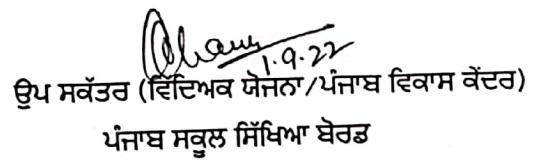 1.9.22
ਉਪ ਸਕੱਤਰ (ਵਿੱਦਿਅਕ ਯੋਜਨਾ/ਪੰਜਾਬ ਵਿਕਾਸ ਕੇਂਦਰ)
ਪੰਜਾਬ ਸਕੂਲ ਸਿੱਖਿਆ ਬੋਰਡ